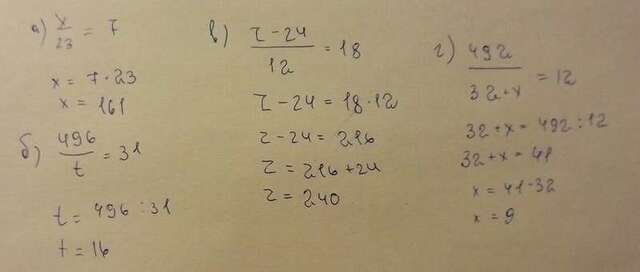 а) x/23 = 7
x = 7·23
x = 161
б) 496/t = 31
t = 496 : 31
t = 16
в) z-24/12 = 18
z-24 = 18·12
z-24 = 216
z = 216+24
z = 240
г) 492/32+x = 12
32+x = 492 : 12
32+x = 41
x = 41-32
x = 9